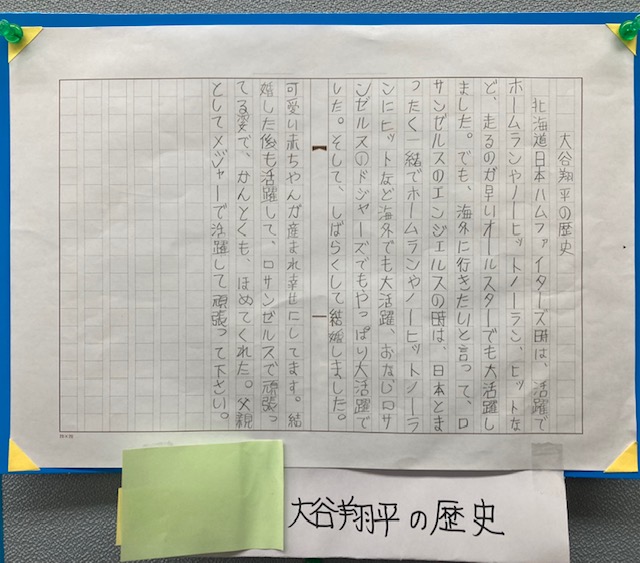 大谷翔平の歴史
北海道日本ハムファイターズ時は、活躍で
ホームランやノーヒットノーラン、ヒットな
ど、走るのが早いオールスターでも大活躍し
ました。でも、海外に行きたいと言って、ロ
サンゼルスのエンジェルスの時は、日本とま
ったく一緒でホームランやノーヒットノーラ
ンにヒットなど海外でも大活躍、おなじロサ
ンゼルスのドジャースでもやっぱり大活躍で
した。そして、しばらくして結婚しました。
可愛い赤ちゃんが産まれ幸せにしてます。結
婚した後も活躍して、ロサンゼルスで頑張っ
てる姿で、かんとくも、ほめてくれた。父親
としてメジャーで活躍して頑張って下さい。
大谷翔平の歴史